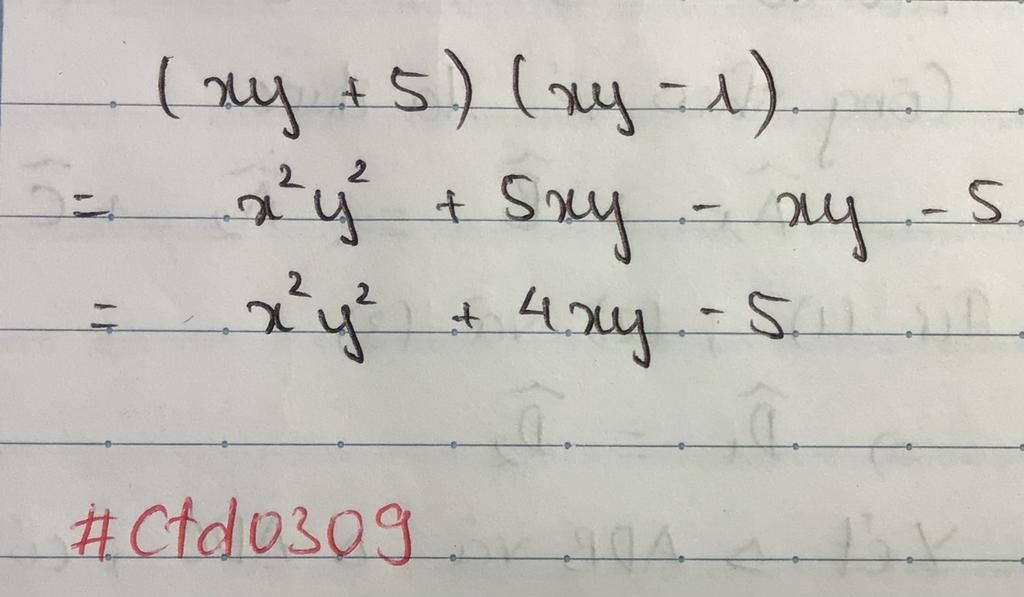 (xy + 5) (xy - 1)
= x²y² + 5xy - xy - 5
= x²y² + 4xy - 5
#Ctd0309